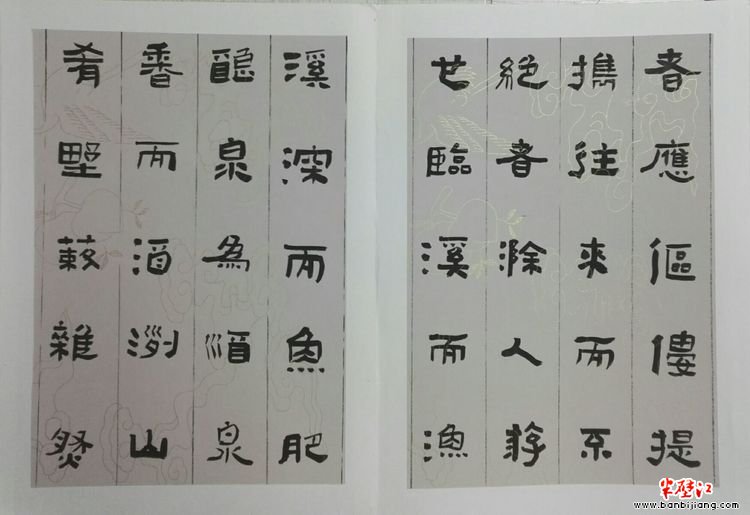 者應傴僂提
攜往來而不
絕者滁人游
也臨溪而漁
溪深而魚肥
釀泉為酒泉
香而酒洌山
肴墅蔌雜然
半壁江
www.banbijiang.com